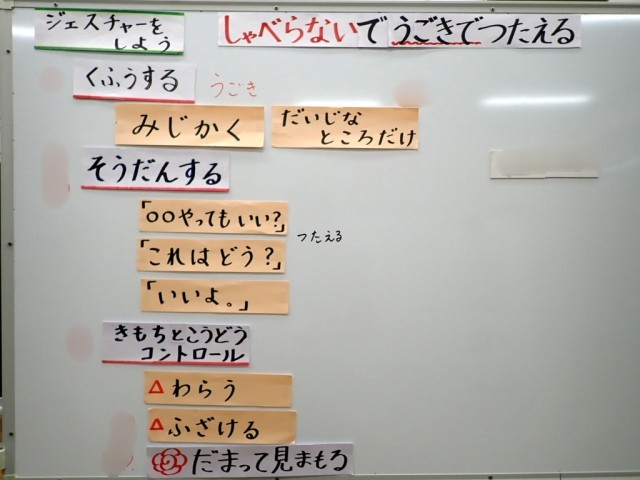 ジェスチャーを
しよう
しゃべらないでうごきでつたえる
くふうする
うごき
みじかく
だいじな
ところだけ
そうだんする
「○○やってもいい?」
「これはどう?」
つたえる
「いいよ。」
きもちとこうどう
コントロール
△わらう
△ふざける
だまって見まもる